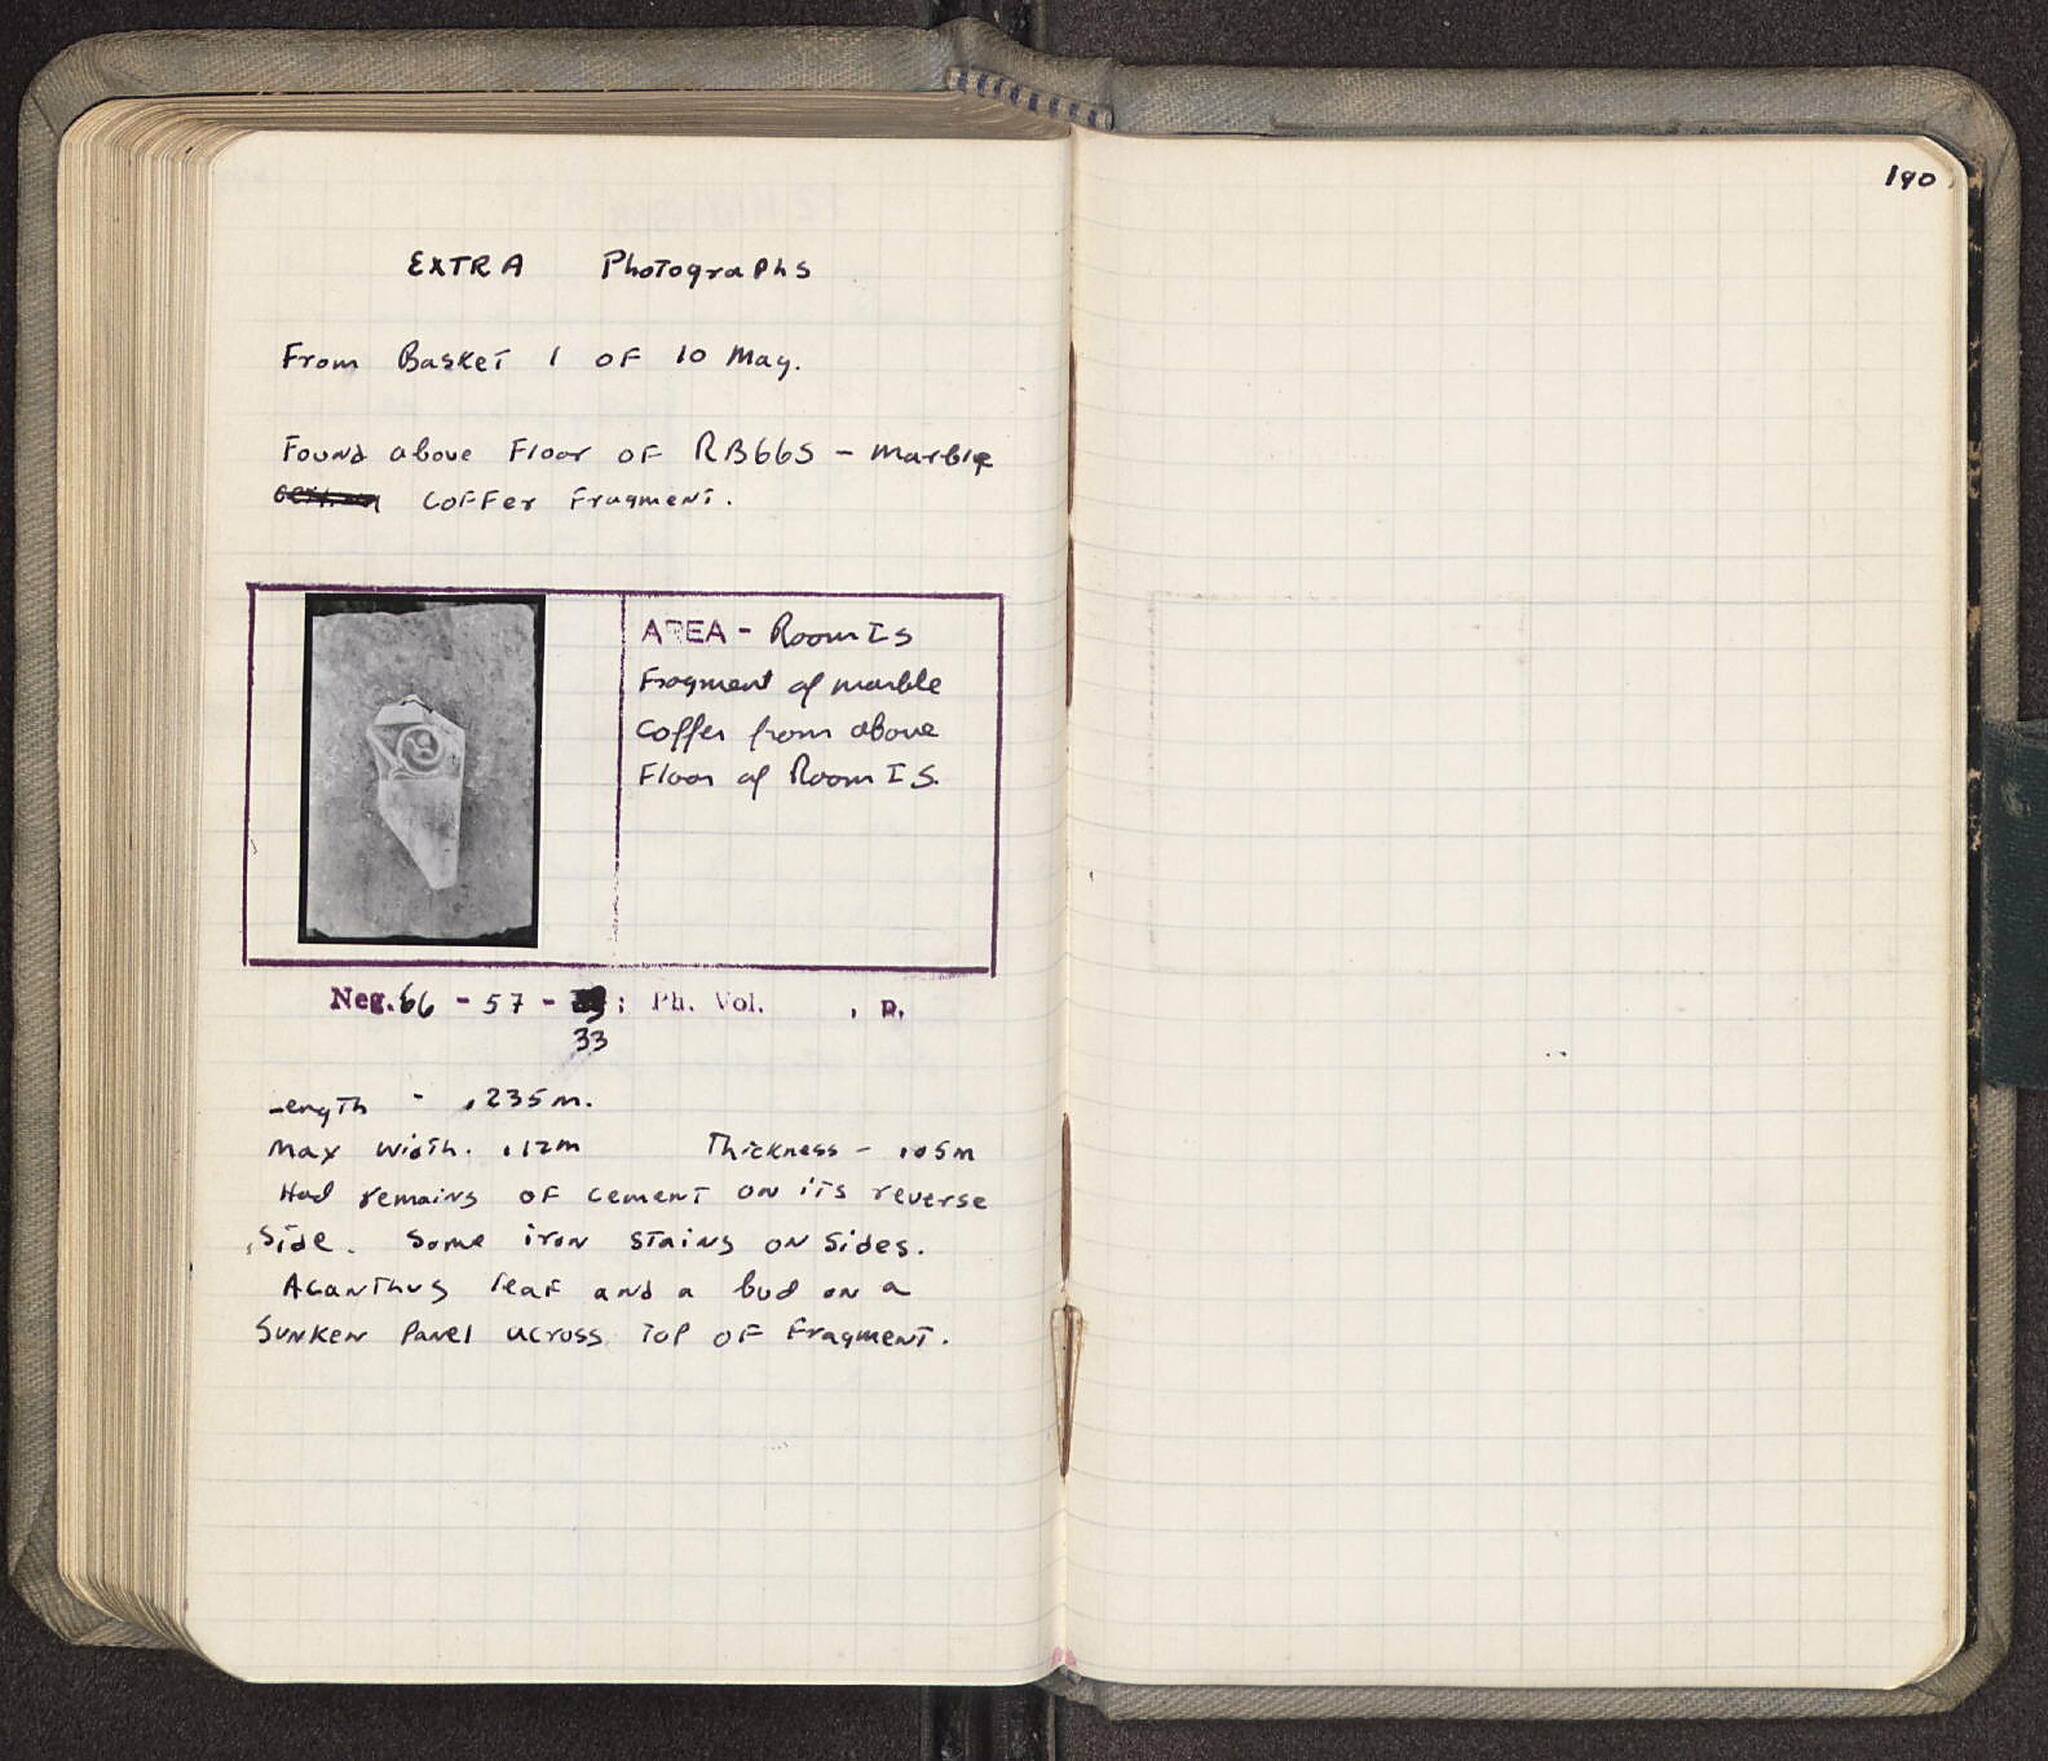 EXTRA Photographs
From Basket 1 of 10 May.
Found above Floor of RB66S - Marble
Coffer Fragment.
AREA - Room I S
Fragment of marble
Coffer from above
Floor of Room I S.
Neg. 66 - 57 - ; Ph. Vol. , p.
33
Length - .235m.
Max Width. .12m Thickness - .05m
Had remains of cement on its reverse
side. Some iron stains on sides.
Acanthus leaf and a bud on a
Sunken Panel across top of Fragment.
190